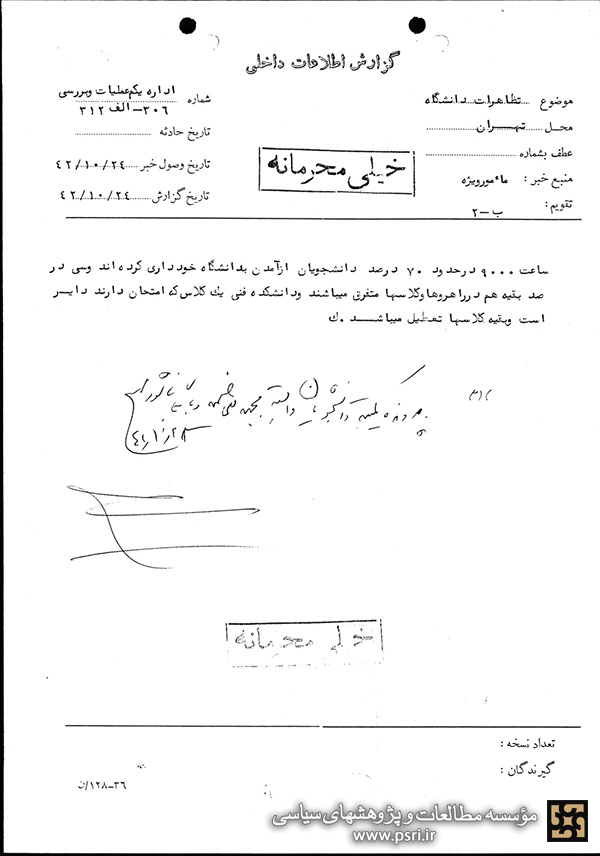 گزارش اطلاعات داخلی
موضوع ....تظاهرات..دانشگاه
محل ......تهران......
عطف بشماره ..............
منبع خبر : مأمورویژه
تقویم : ب-۲
خیلی محرمانه
شماره اداره یکم عملیات وبررسی
۳۰۶-الف ۳۱۲
تاریخ حادثه ..............
تاریخ وصول خبر ۴۲/۱۰/۲۴
تاریخ گزارش ۴۲/۱۰/۲۴
ساعت ۹۰۰۰ درحدود ۷۰ درصد دانشجویان ازآمدن بدانشگاه خودداری کرده اند وسی در
صد بقیه هم درراهروهاوکلاسها متفرق میباشند ودانشکده فنی یك کلاس که امتحان دارند دایـر
است وبقیه کلاسها تعطیل میباشـــد .ك
خیلی محرمانه
تعداد نسخه :
گیرندگان :
۱۲۸-۳۶/ن
مؤسسه مطالعات و پژوهشهای سیاسی
www.psri.ir